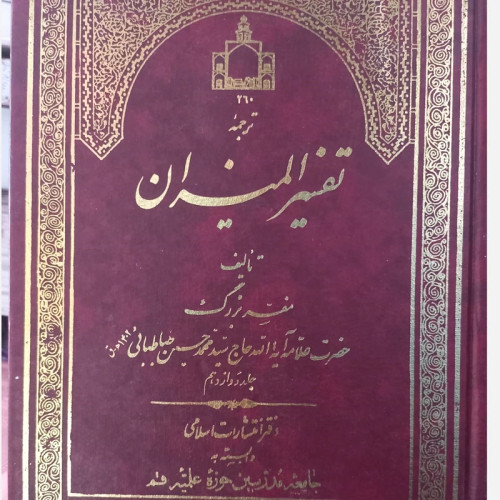 ۳۶۰
ترجمهٔ
تفسیر المیزان
تألیف
مفسر بزرگ
حضرت علامه آیة الله حاج سید محمد حسین طباطبائی
جلد دوازدهم
دفتر انتشارات اسلامی
وابسته به
جامعه مدرسین حوزه علمیه قم